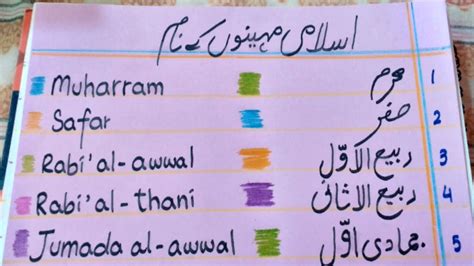 اسلامی مہینوں کے نام
Muharram محرم 1
Safar صفر 2
Rabi'al-awwal ربیع الاوّل 3
Rabi'al-thani ربیع الاثانی 4
Jumada al-awwal جمادی اوّل 5